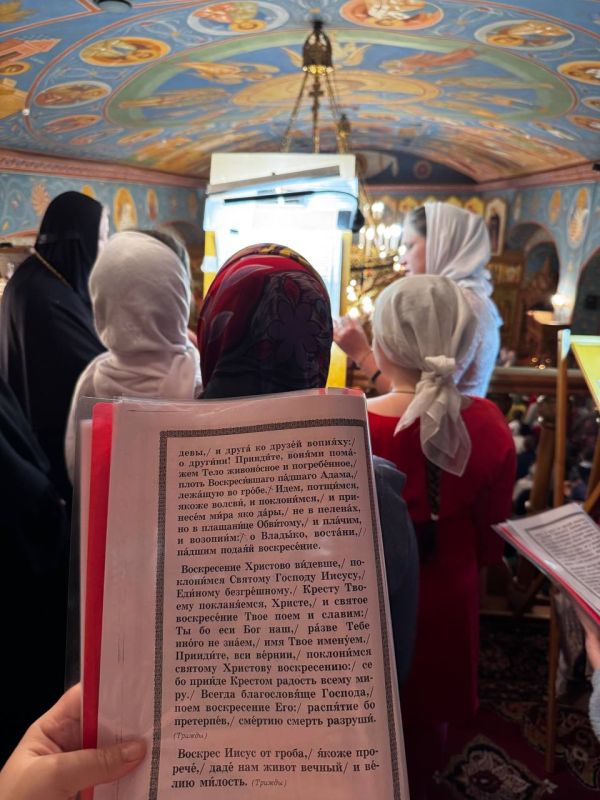 девы,/ и друга́ ко друзе́й вопия́ху:/
о други́ни! Прииди́те, воня́ми пома́-
жем Тело живоно́сное и погребе́нное,
плоть Воскреси́вшаго па́дшаго Адама,
лежа́щую во гро́бе./ Идем, потщи́мся,
якоже волсви́, и поклони́мся,/ и при-
несе́м ми́ра яко да́ры,/ не в пелена́х,
но в плащани́це Обви́тому,/ и пла́чим,
и возопии́м:/ о Влады́ко, воста́ни,/
па́дшим подая́й воскресе́ние.
Воскресение Христово ви́девше,/ по-
клони́мся Святому Господу Иисусу,/
Еди́ному безгре́шному./ Кресту Тво-
ему покланя́емся, Христе,/ и святое
воскресе́ние Твое поем и славим:/
Ты бо еси Бог наш,/ ра́зве Тебе
ино́го не зна́ем,/ имя Твое имену́ем./
Прииди́те, вси ве́рнии,/ поклони́мся
святому Христову воскресению:/ се
бо прии́де Крестом радость всему ми-
ру./ Всегда благословя́ще Господа,/
поем воскресение Его:/ распя́тие бо
претерпе́в,/ сме́ртию смерть разруши́.
(Трижды)
Воскрес Иисус от гроба,/ я́коже про-
рече́,/ даде́ нам живот вечный/ и ве́-
лию ми́лость. (Трижды)